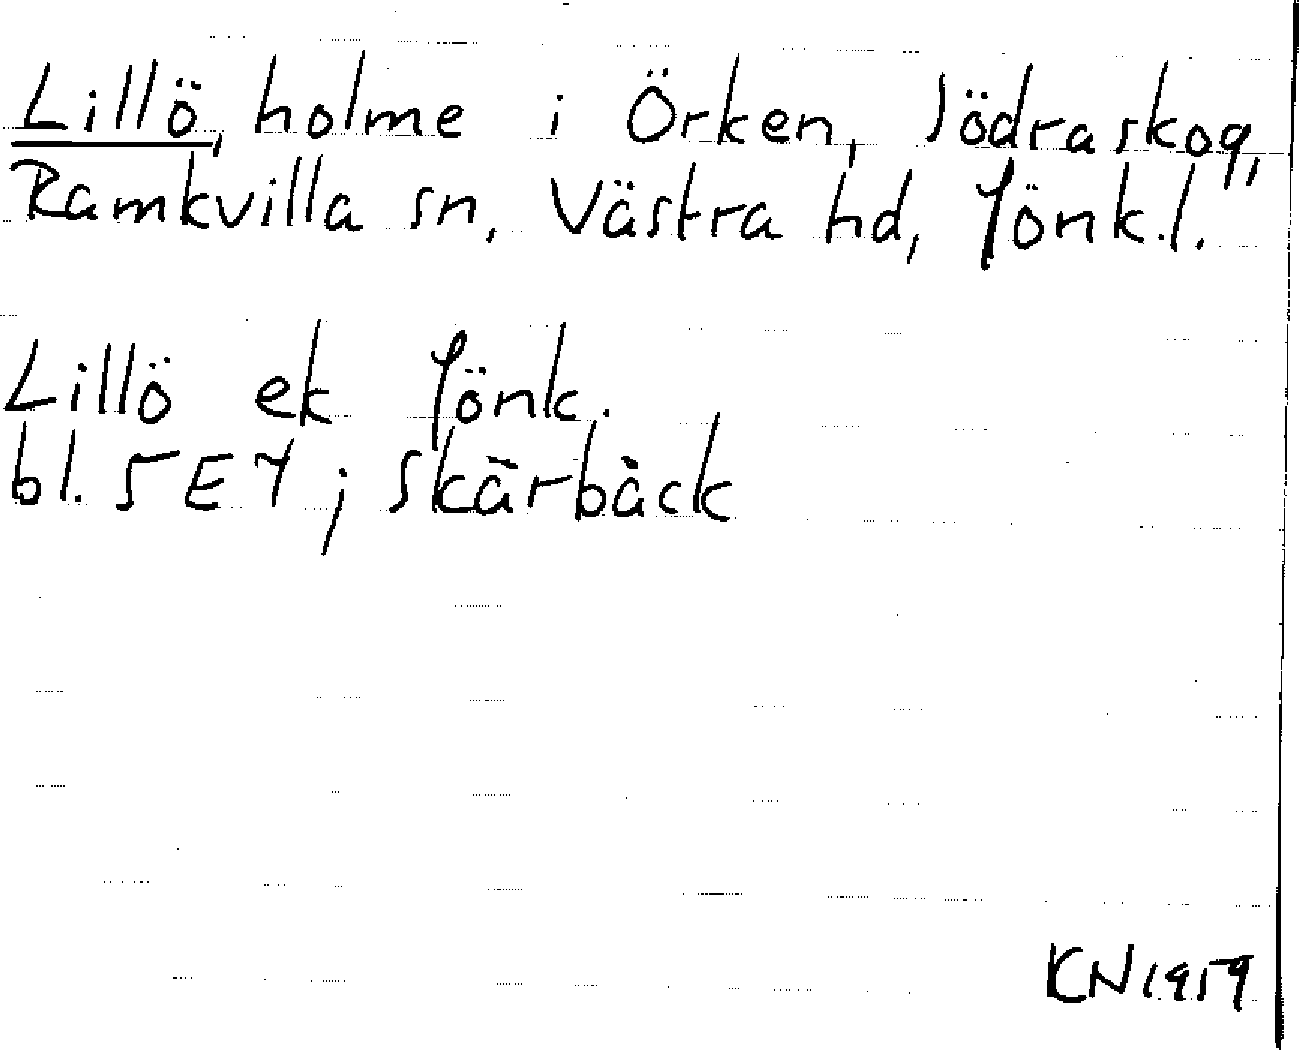 Lillö, holme i Örken, Södraskog,
Ramkvilla sn, Västra hd, Jönk.l.
Lillö ek Jönk.
bl. 5E7; Skärbäck
KN1959